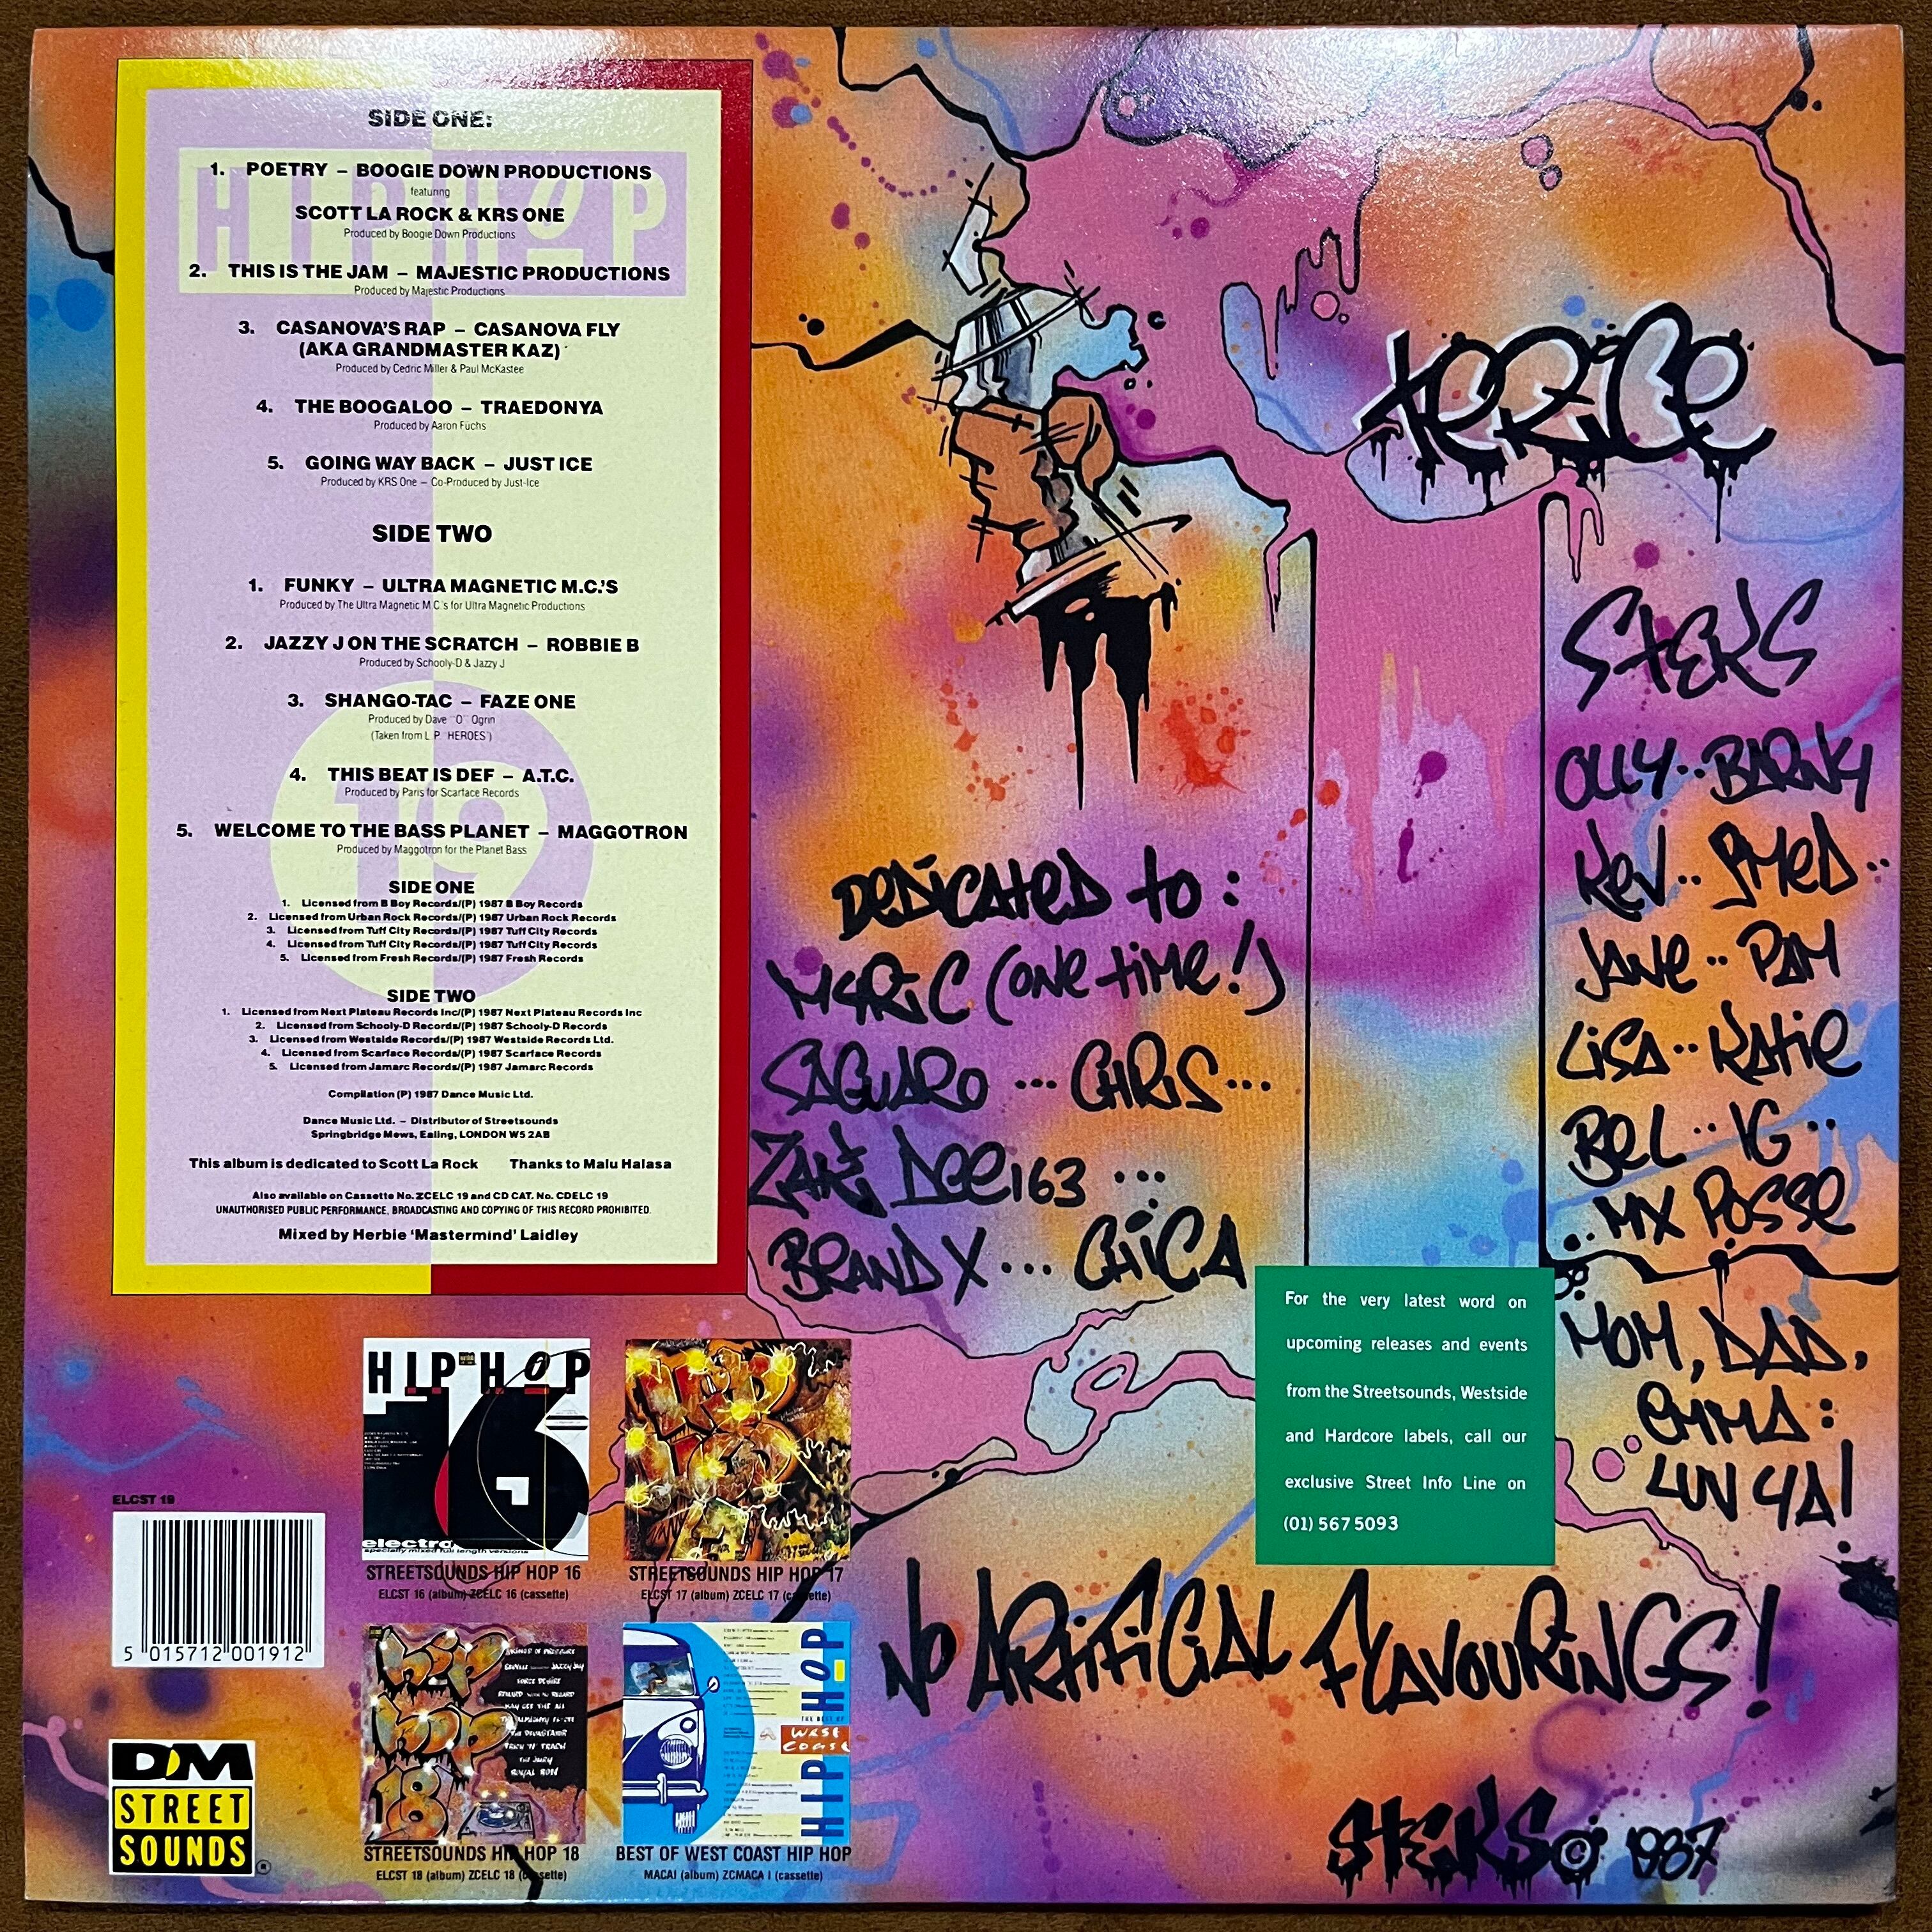 SIDE ONE:
1. POETRY – BOOGIE DOWN PRODUCTIONS
featuring
SCOTT LA ROCK & KRS ONE
Produced by Boogie Down Productions
2. THIS IS THE JAM – MAJESTIC PRODUCTIONS
Produced by Majestic Productions
3. CASANOVA'S RAP – CASANOVA FLY
(AKA GRANDMASTER KAZ)
Produced by Cedric Miller & Paul McKastee
4. THE BOOGALOO – TRAEDONYA
Produced by Aaron Fuchs
5. GOING WAY BACK – JUST ICE
Produced by KRS One – Co-Produced by Just-Ice
SIDE TWO
1. FUNKY – ULTRA MAGNETIC M.C.'S
Produced by The Ultra Magnetic M.C.'s for Ultra Magnetic Productions
2. JAZZY J ON THE SCRATCH – ROBBIE B
Produced by Schooly-D & Jazzy J
3. SHANGO-TAC – FAZE ONE
Produced by Dave "O" Ogrin
(Taken from L.P. 'HEROES')
4. THIS BEAT IS DEF – A.T.C.
Produced by Paris for Scarface Records
5. WELCOME TO THE BASS PLANET – MAGGOTRON
Produced by Maggotron for the Planet Bass
SIDE ONE
1. Licensed from B Boy Records/(P) 1987 B Boy Records
2. Licensed from Urban Rock Records/(P) 1987 Urban Rock Records
3. Licensed from Tuff City Records/(P) 1987 Tuff City Records
4. Licensed from Tuff City Records/(P) 1987 Tuff City Records
5. Licensed from Fresh Records/(P) 1987 Fresh Records
SIDE TWO
1. Licensed from Next Plateau Records Inc/(P) 1987 Next Plateau Records Inc
2. Licensed from Schooly-D Records/(P) 1987 Schooly-D Records
3. Licensed from Westside Records/(P) 1987 Westside Records Ltd.
4. Licensed from Scarface Records/(P) 1987 Scarface Records
5. Licensed from Jamarc Records/(P) 1987 Jamarc Records
Compilation (P) 1987 Dance Music Ltd.
Dance Music Ltd. – Distributor of Streetsounds
Springbridge Mews, Ealing, LONDON W5 2AB
This album is dedicated to Scott La Rock Thanks to Malu Halasa
Also available on Cassette No. ZCELC 19 and CD CAT. No. CDELC 19
UNAUTHORISED PUBLIC PERFORMANCE, BROADCASTING AND COPYING OF THIS RECORD PROHIBITED.
Mixed by Herbie 'Mastermind' Laidley
HIP HOP
19
STEKS
OLLY.. BARNY
KEV.. AMED..
JANE.. PAM
LISA.. KATIE
BEL.. IG..
..MX POSSE
MOM, DAD,
EMMA:
LUV YA!
DEDICATED TO:
(ONE TIME!)
SAGUARO ... CHRIS...
DEE163 ...
BRAND X ... CHICA
For the very latest word on
upcoming releases and events
from the Streetsounds, Westside
and Hardcore labels, call our
exclusive Street Info Line on
(01) 567 5093
NO ARTIFICIAL FLAVOURINGS!
STEKS © 1987
ELCST 19
5 015712 001912
HIP HOP
16
electro
specially mixed full length versions
STREETSOUNDS HIP HOP 16
ELCST 16 (album) ZCELC 16 (cassette)
HIP HOP
STREETSOUNDS HIP HOP 17
ELCST 17 (album) ZCELC 17 (cassette)
HIP HOP 18
STREETSOUNDS HIP HOP 18
ELCST 18 (album) ZCELC 18 (cassette)
THE BEST OF
WEST COAST
HIP HOP
BEST OF WEST COAST HIP HOP
MACAI (album) ZCMACA I (cassette)
DM
STREET
SOUNDS
®